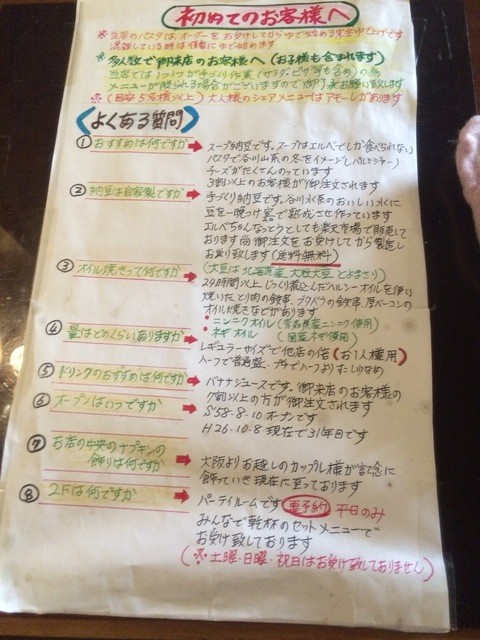 初めてのお客様へ
※当店のパスタは、オーダーをお受けしてからゆで始める完全ゆで上げです
混雑している時は順番にゆで始めます
※多人数で御来店のお客様へ(お子様も含まれます)
当店では1つ1つが手づくり作業(サラダ・ピザ等も含め)の為
メニューが限られる場合がございますので御了承お願い致します
※(目安5名様以上) 大人様のシェアメニューはアモーレがあります
よくある質問
① おすすめは何ですか → スープ納豆です。スープはエルベでしか食べられない
パスタで谷川山系の冬をイメージ
チーズがたくさんのっています
3割以上のお客様が御注文されます
② 納豆は自家製ですか → 手づくり納豆です。谷川水系のおいしい水に
豆を一晩つけ で熟成させ作っています
エルベちゃんなっとうとしても楽天市場で販売して
おります尚御注文をお受けしてから製造し
お送り致します(送料無料)
(大豆は北海道産 大粒大豆とよまさり)
③ オイル焼きって何ですか → 24時間以上じっくり煮込んだハルシーオイルを使い
焼いたとり肉の鉄串、プクプクの鉄串、厚ベーコンの
オイル焼きなどがあります
・ニンニクオイル(青森県産ニンニク使用)
ネギオイル (国産ネギ使用)
④ 量はどのくらいありますか → レギュラーサイズで他店の倍(お1人様用)
ハーフで普通盛 プチでハーフよりすこし少なめ
⑤ ドリンクのおすすめは何ですか → バナナジュースです。御来店のお客様の
7割以上の方が御注文されます
⑥ オープンはいつですか → S58・8・10オープンです
H26・10・8現在で31年目です
⑦ お店の中央のナプキンの
飾りは何ですか → 大阪よりお越しのカップル様が記念に
飾っていき現在に至っております
⑧ 2Fは何ですか → パーティールームです 要予約 平日のみ
みんなで乾杯のセットメニューで
お受け致しております
(※土曜・日曜・祝日はお受け致しておりません)